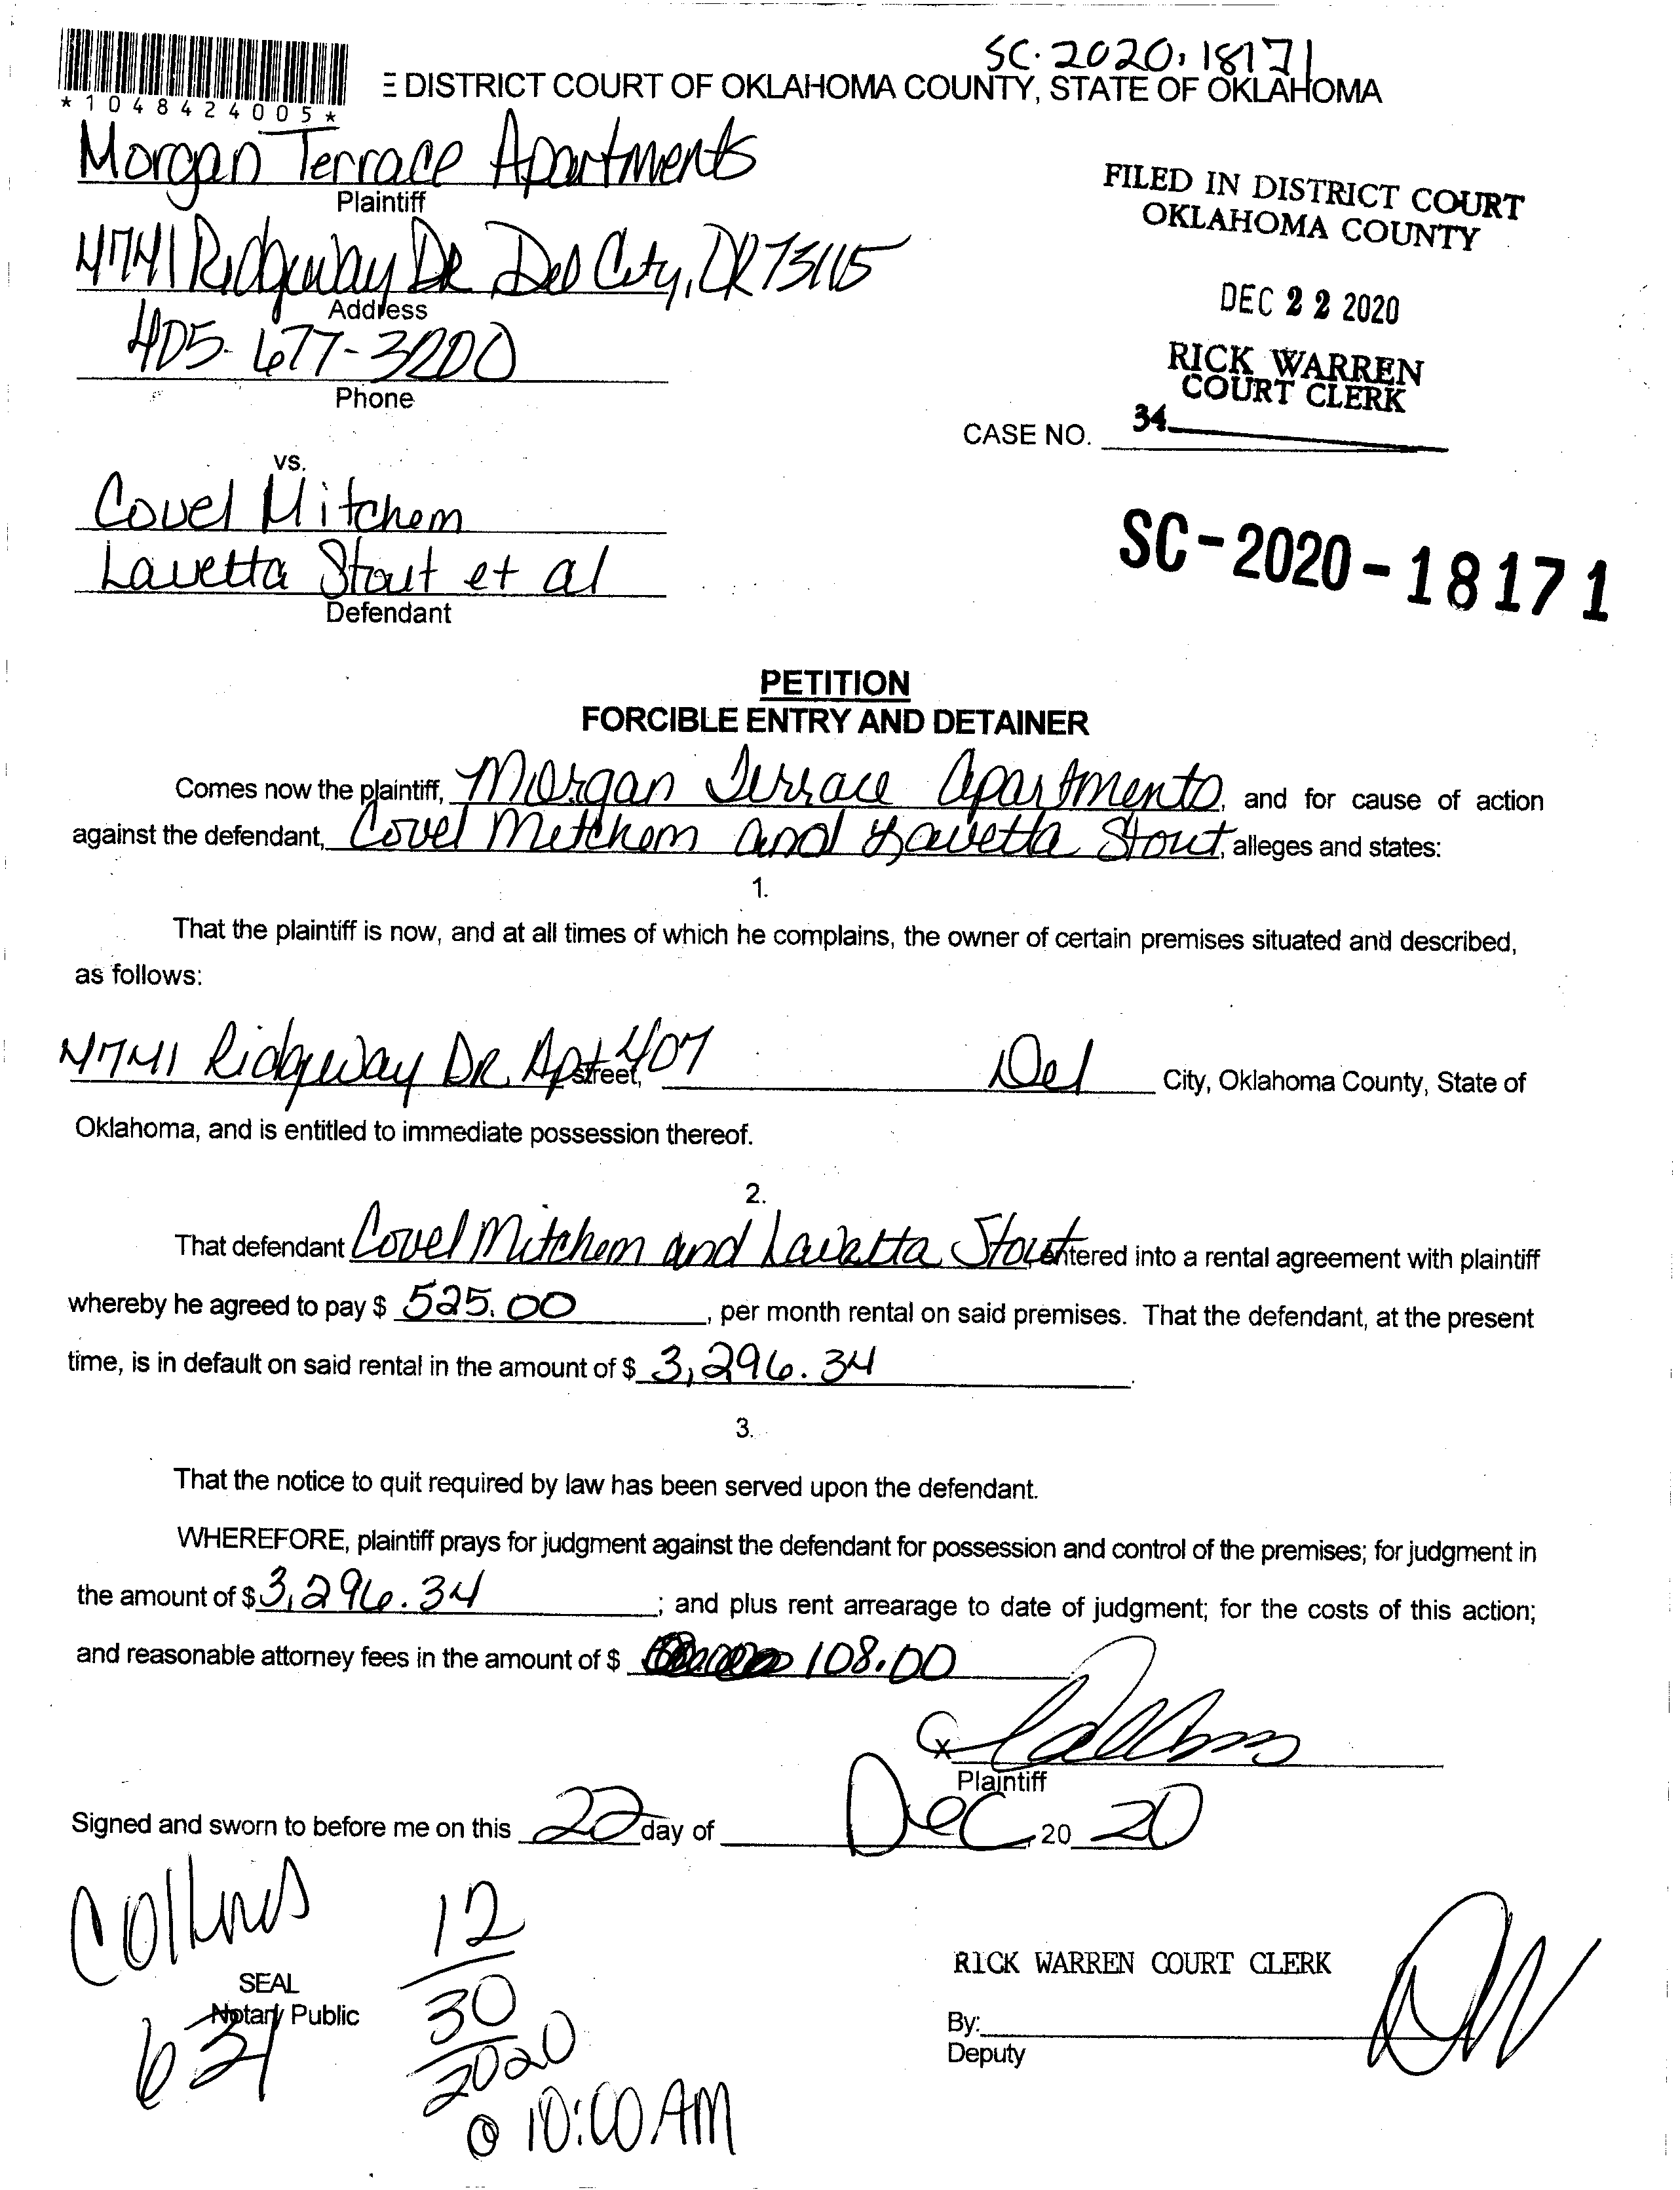 SC-2020-18171
DISTRICT COURT OF OKLAHOMA COUNTY, STATE OF OKLAHOMA
*1048424005*
Morgan Terrace Apartments
Plaintiff
FILED IN DISTRICT COURT
OKLAHOMA COUNTY
4741 Ridgeway DR Del City, OK 73115
Address
DEC 22 2020
405-677-3200
Phone
RICK WARREN
COURT CLERK
34
CASE NO.
vs.
Covel Mitchem
Lavetta Stout et al
Defendant
SC-2020-18171
PETITION
FORCIBLE ENTRY AND DETAINER
Comes now the plaintiff, Morgan Terrace Apartments, and for cause of action
against the defendant, Covel Mitchem and Lavetta Stout, alleges and states:
1.
That the plaintiff is now, and at all times of which he complains, the owner of certain premises situated and described,
as follows:
4741 Ridgeway DR Apt 407 street, Del City, Oklahoma County, State of
Oklahoma, and is entitled to immediate possession thereof.
2.
That defendant Covel Mitchem and Lavetta Stout entered into a rental agreement with plaintiff
whereby he agreed to pay $ 525.00, per month rental on said premises. That the defendant, at the present
time, is in default on said rental in the amount of $ 3,296.34.
3.
That the notice to quit required by law has been served upon the defendant.
WHEREFORE, plaintiff prays for judgment against the defendant for possession and control of the premises; for judgment in
the amount of $ 3,296.34; and plus rent arrearage to date of judgment; for the costs of this action;
and reasonable attorney fees in the amount of $ 108.00
x
Plaintiff
Signed and sworn to before me on this 22 day of Dec, 20 20
Collins
12
30
2020
@ 10:00 AM
SEAL
Notary Public
631
RICK WARREN COURT CLERK
By:
Deputy